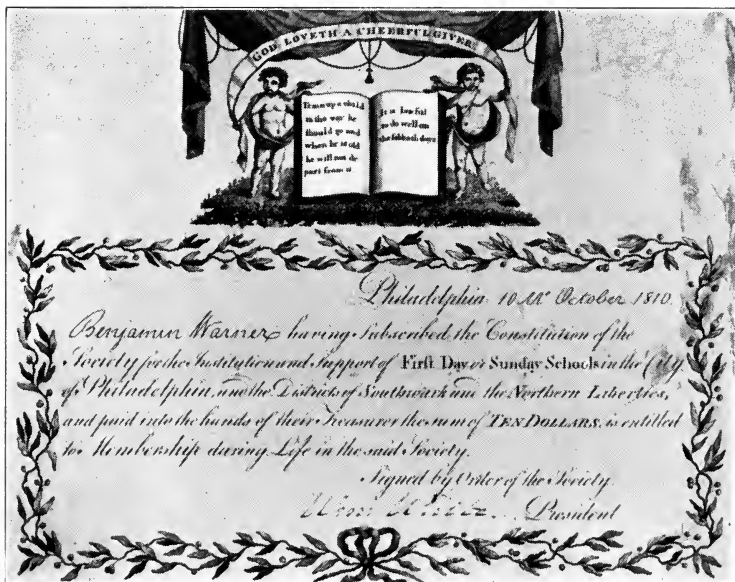 GOD LOVETH A CHEERFUL GIVER
Train up a child
in the way he
should go and
when he is old
he will not de
part from it
It is lawful
to do well on
the sabbath days
Philadelphia 10th October 1810.
Benjamin Warner having Subscribed the Constitution of the
Society for the Institution and Support of First Day or Sunday Schools in the City
of Philadelphia, and the Districts of Southwark and the Northern Liberties,
and paid into the hands of their Treasurer the sum of TEN DOLLARS, is entitled
to Membership during Life in the said Society.
Signed by Order of the Society.
Wm White President